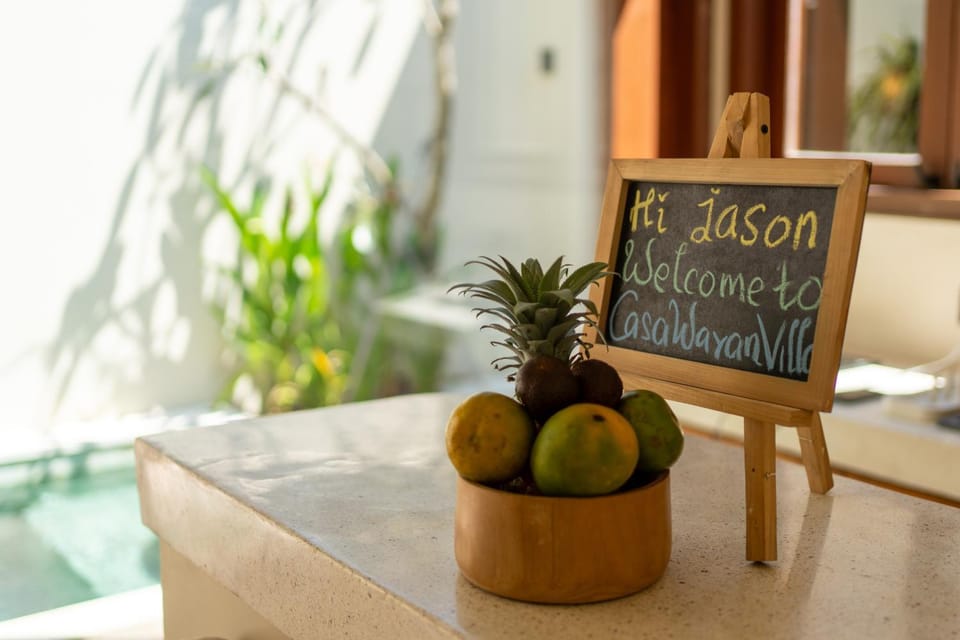 Hi Jason
Welcome to
CasaWayanVilla